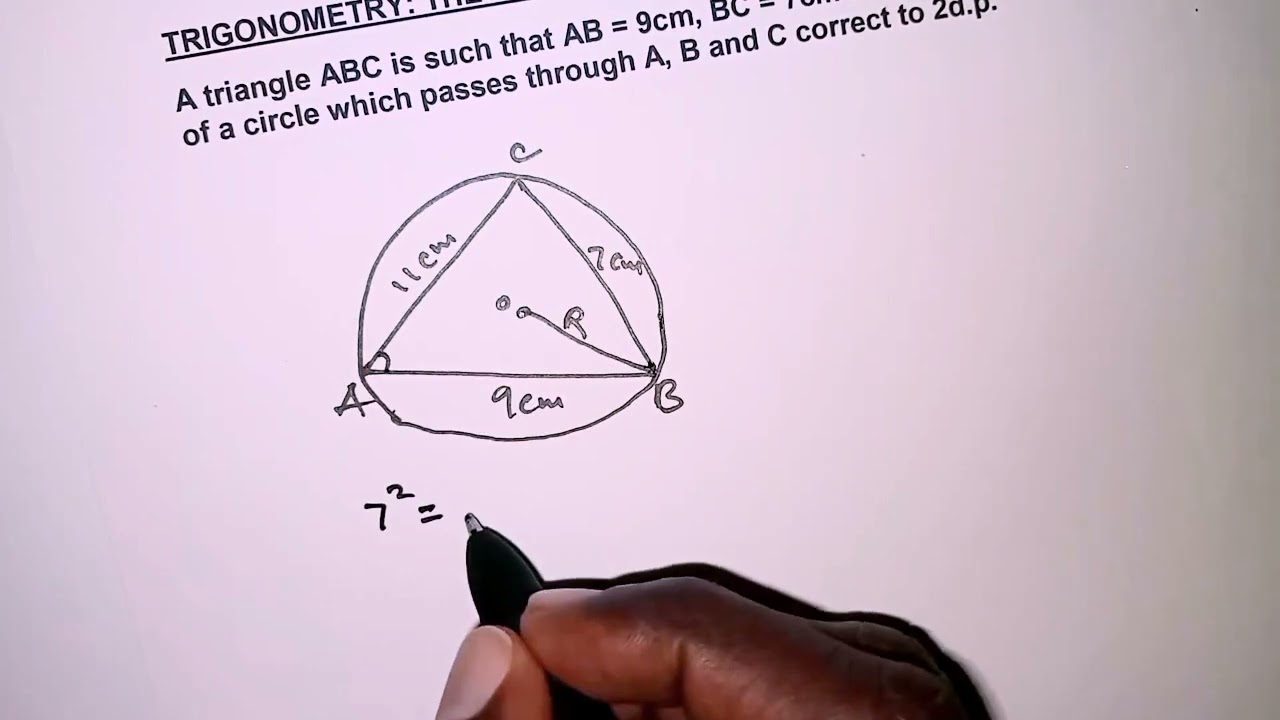 TRIGONOMETRY: THE
A triangle ABC is such that AB = 9cm, BC = 7cm
of a circle which passes through A, B and C correct to 2d.p.
C
11cm
7cm
O
R
A
9cm
B
7² =